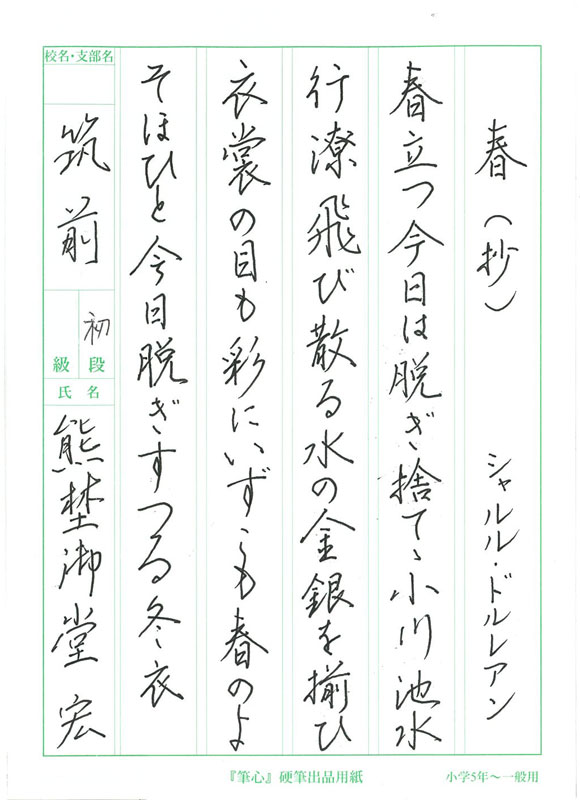 春(抄) シャルル・ドルレアン
春立つ今日は脱ぎ捨てゝ小川池水
行潦飛び散る水の金銀を揃ひ
衣裳の目も彩にいずこも春のよ
そほひと今日脱ぎすつる冬衣
校名・支部名
筑前
初段
級
氏名
熊埜御堂 宏
『筆心』硬筆出品用紙
小学5年〜一般用